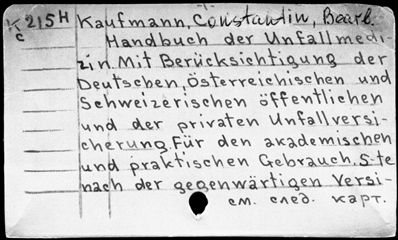 K 215H Kaufmann, Constantin, Bearb.
c Handbuch der Unfallmedi-
zin. Mit Berücksichtigung der
Deutschen, Österreichischen und
Schweizerischen öffentlichen
und der privaten Unfallversi-
cherung. Für den akademischen
und praktischen Gebrauch. 5-te
nach der gegenwärtigen Versi-
см. след. карт.